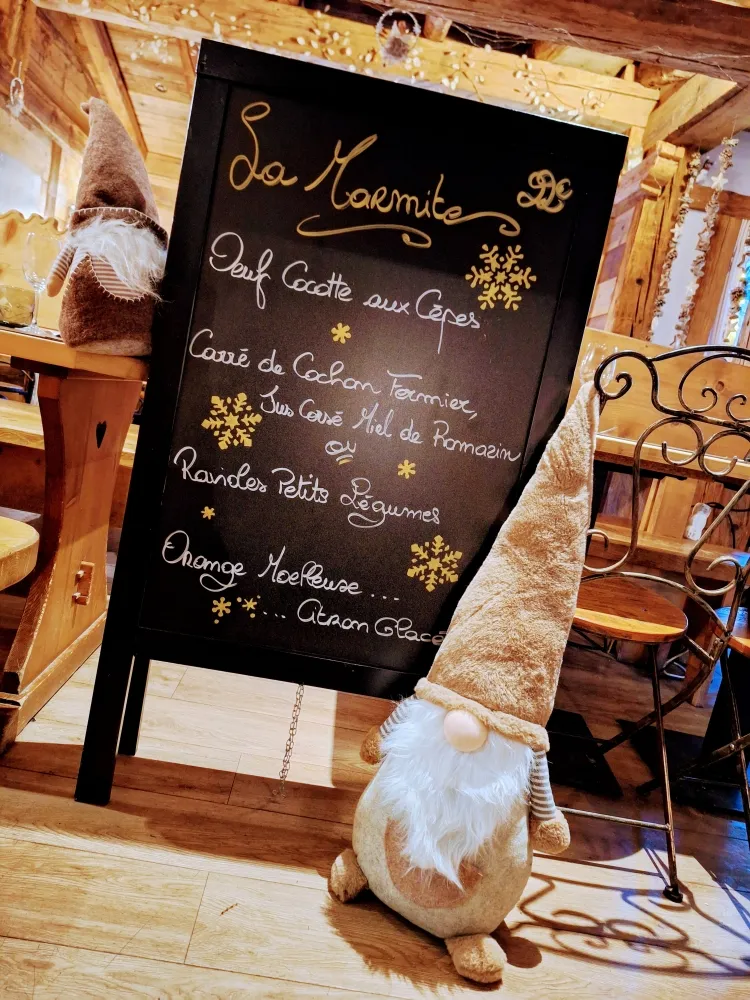 La Marmite
Oeuf Cocotte aux Cèpes
Carré de Cochon Fermier,
Jus Corsé Miel de Romarin
ou
Ravioles Petits Légumes
Orange Moelleuse ...
... Citron Glacé